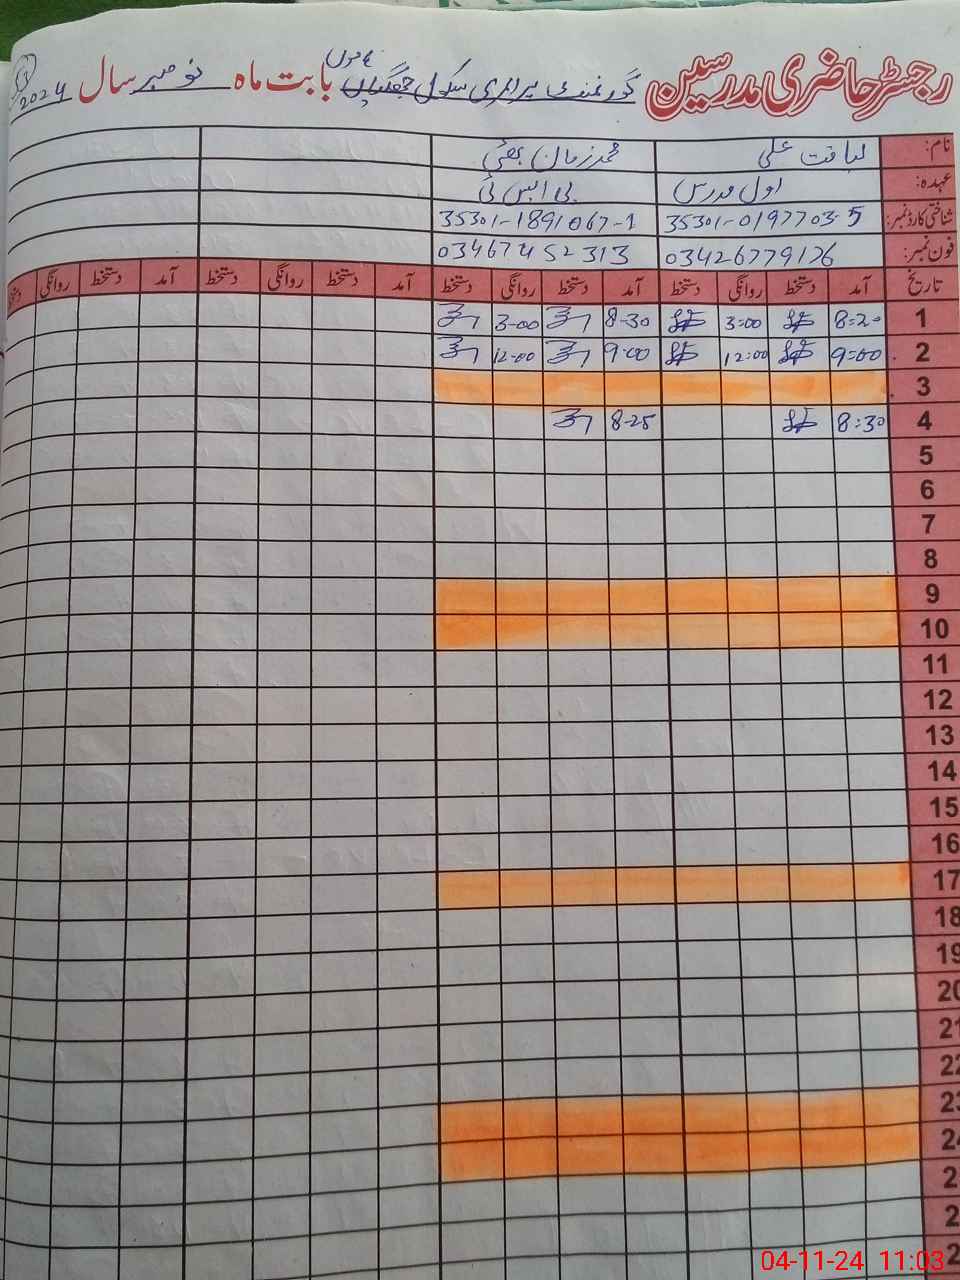 رجسٹر حاضری مدرسین گورنمنٹ پرائمری سکول بابت ماہ نومبر سال 2024
نام: لیاقت علی محمد زمان بھٹی
عہدہ: اول مدرس پی ایس ٹی
شناختی کارڈ نمبر: 35301-0197703-5 35301-1891067-1
فون نمبر: 03426779176 03467452313
تاریخ آمد دستخط روانگی دستخط آمد دستخط روانگی دستخط آمد دستخط روانگی دستخط آمد دستخط روانگی دستخط
1 8:20 3:00 8-30 3-00
2 9:00 12:00 9-00 12-00
3
4 8:30 8-25
5
6
7
8
9
10
11
12
13
14
15
16
17
18
19
20
21
22
23
24
2
2
2
04-11-24 11:03